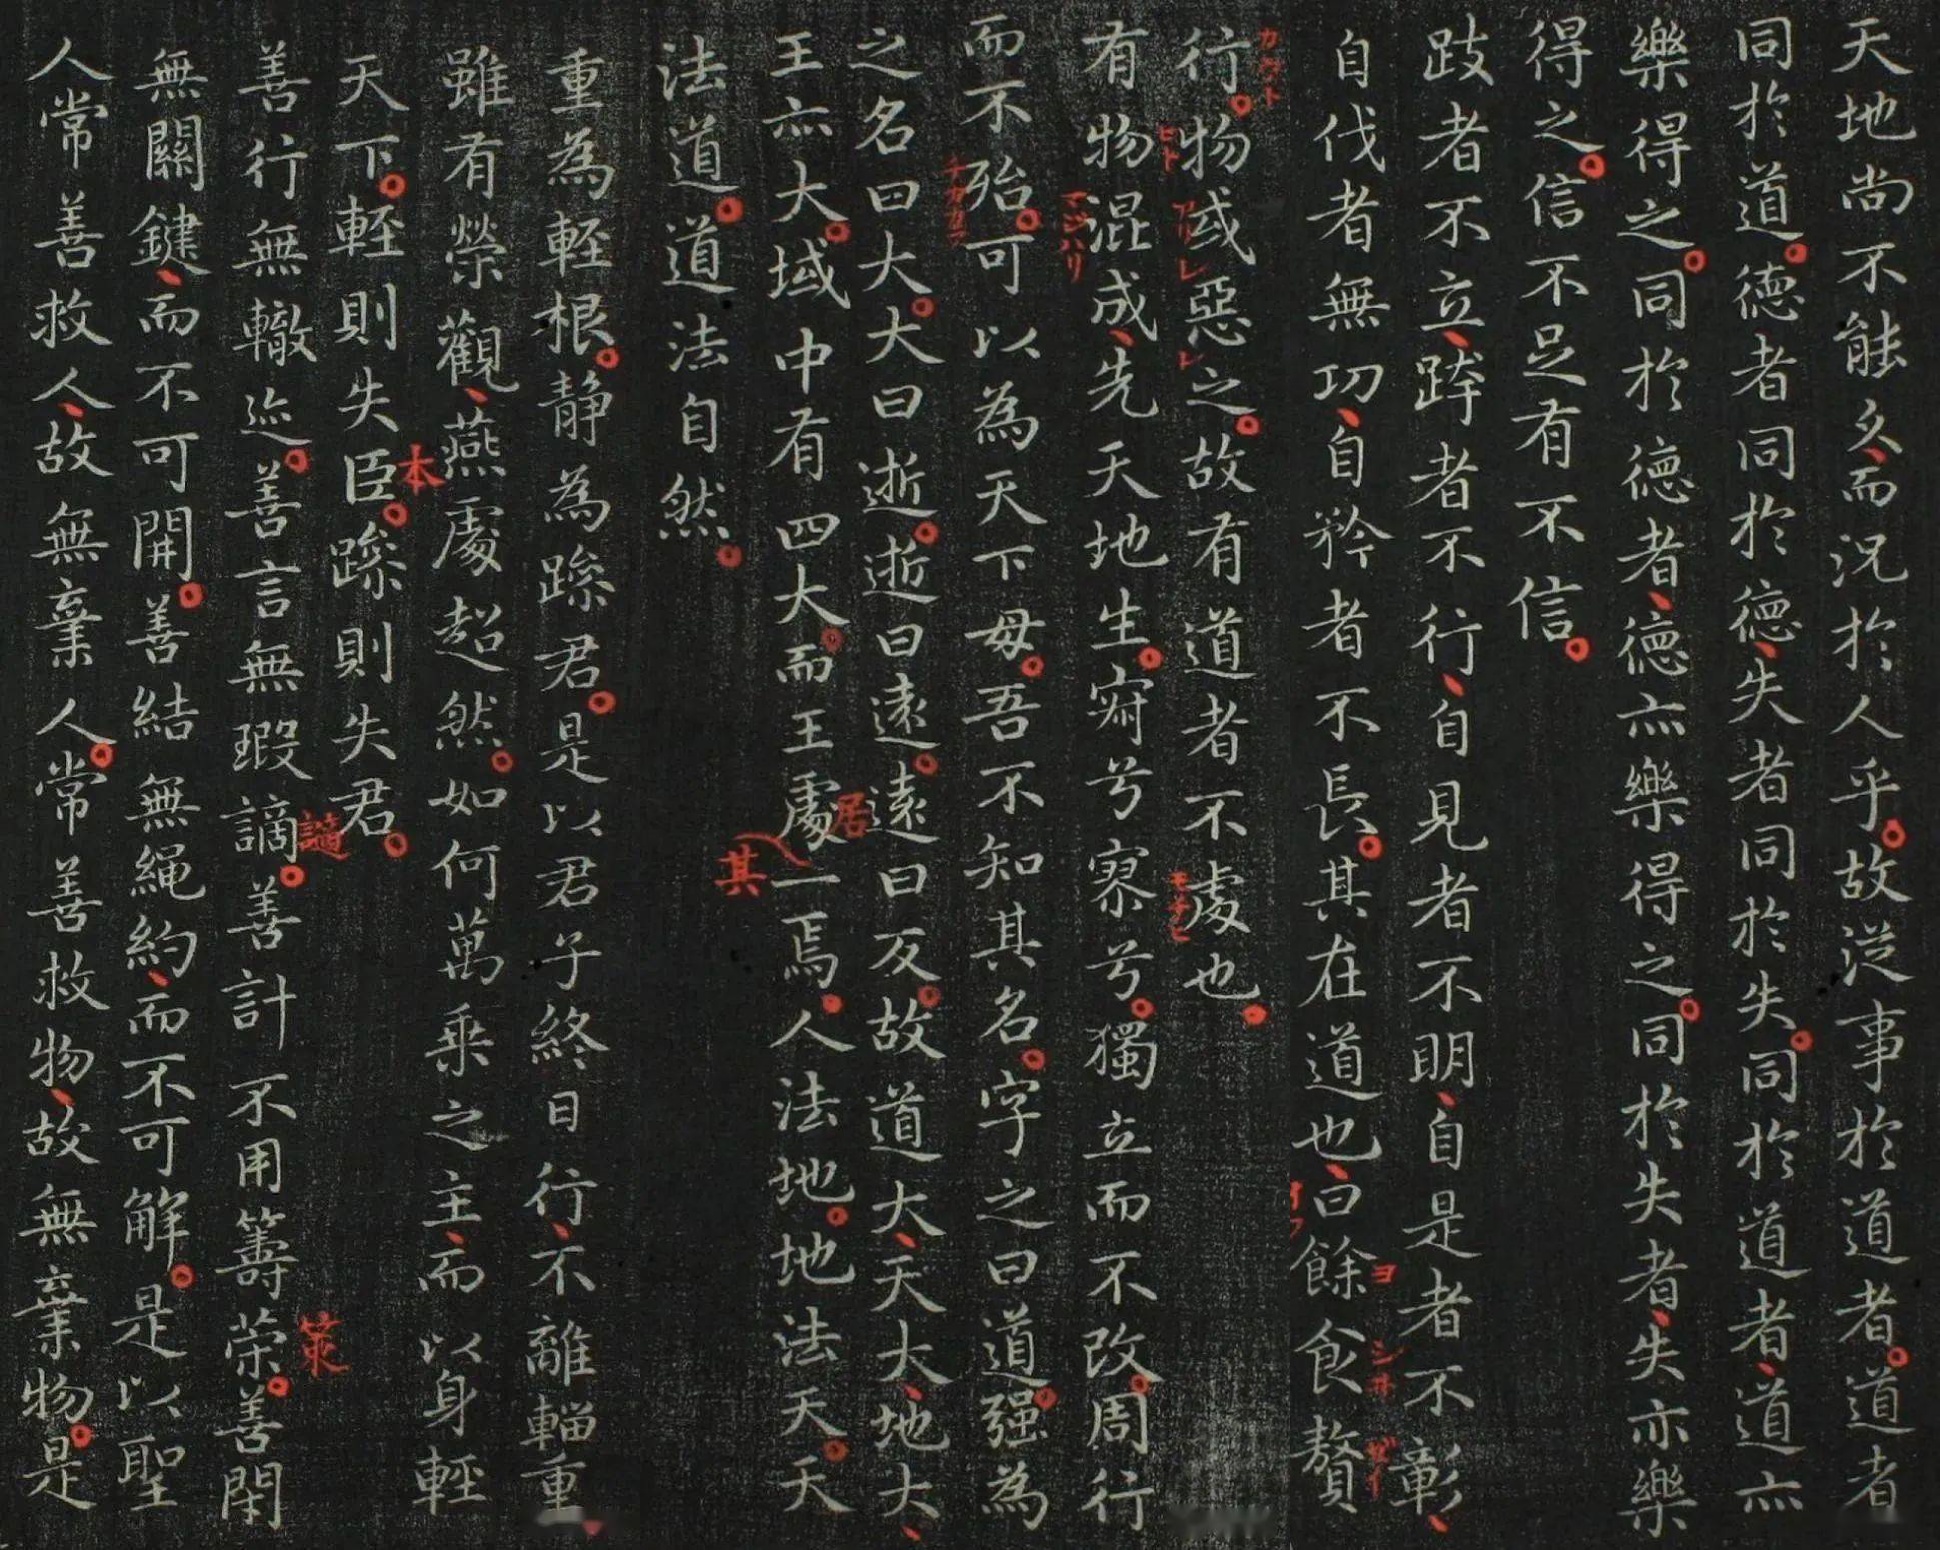 天地尚不能久、而況於人乎。故従事於道者。道者
同於道。德者同於德、失者同於失。同於道者、道亦
樂得之。同於德者、德亦樂得之。同於失者、失亦樂
得之。信不足有不信。
跂者不立、跨者不行、自見者不明、自是者不彰、
自伐者無功、自矜者不長。其在道也、曰餘食贅
イフ
ヨ
シヰ
ゼイ
行。物或惡之。故有道者不處也。
カウト
ヒト
アリ
レ
レ
モチヒ
有物混成、先天地生。寂兮寥兮。獨立而不改。周行
マジハリ
而不殆。可以為天下母。吾不知其名。字之曰道。强為
チカカラ
之名曰大。大曰逝。逝曰遠。遠曰反。故道大、天大、地大、
王亦大。域中有四大。而王處一焉。人法地。地法天。天
居
其
法道。道法自然。
重為輕根。静為躁君。是以君子終日行、不離輜重
雖有榮觀、燕處超然。如何萬乘之主、而以身輕
天下。輕則失臣。躁則失君。
本
善行無轍迹。善言無瑕謫。善計不用籌策。善閇
謫
策
無關鍵、而不可開。善結無繩約、而不可解。是以聖
人常善救人、故無棄人。常善救物、故無棄物。是